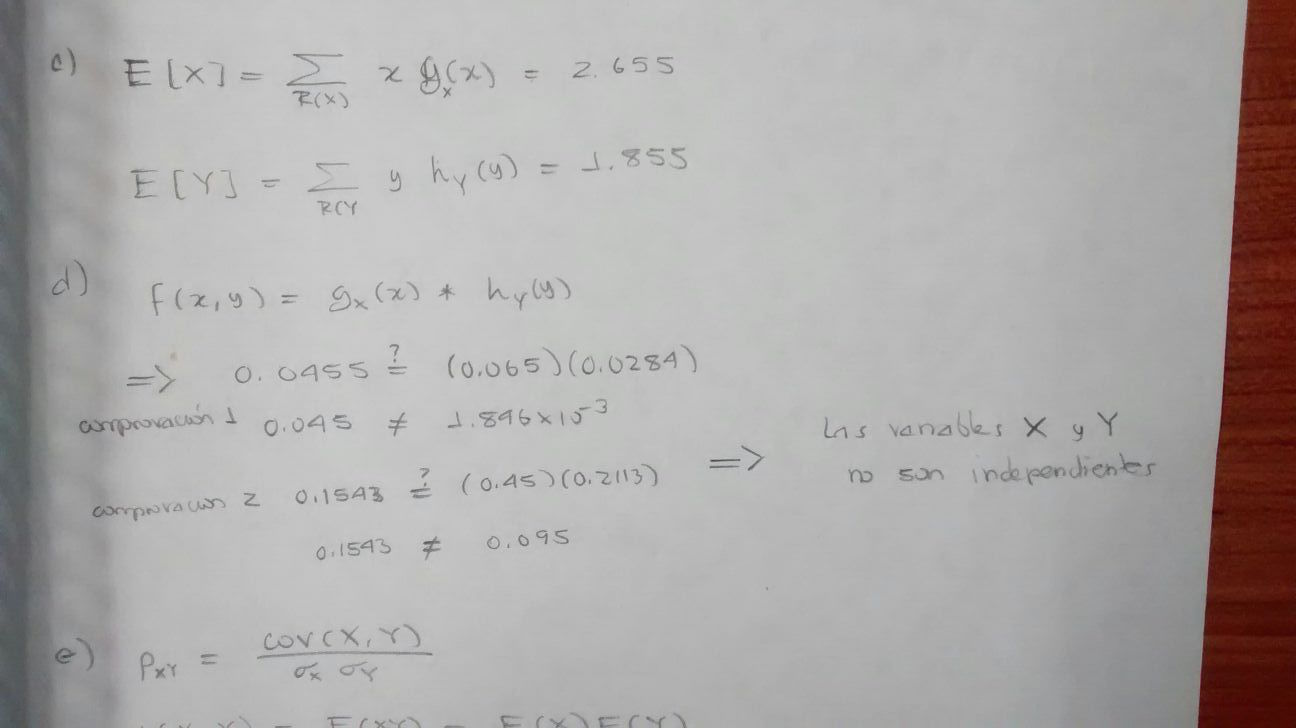 c) E[X] = Σ x g_x(x) = 2.655
R(X)
E[Y] = Σ y h_Y(y) = 1.855
R(Y
d) f(x,y) = g_x(x) * h_Y(y)
=> 0.0455 ?= (0.065)(0.0284)
comprovación 1 0.045 ≠ 1.846x10^-3
comprovacion 2 0.1543 ?= (0.45)(0.2113) => Las variables X y Y
no son independientes
0.1543 ≠ 0.095
e) ρ_XY = cov(X,Y)
σ_x σ_Y
E(XY) - E(X)E(Y)